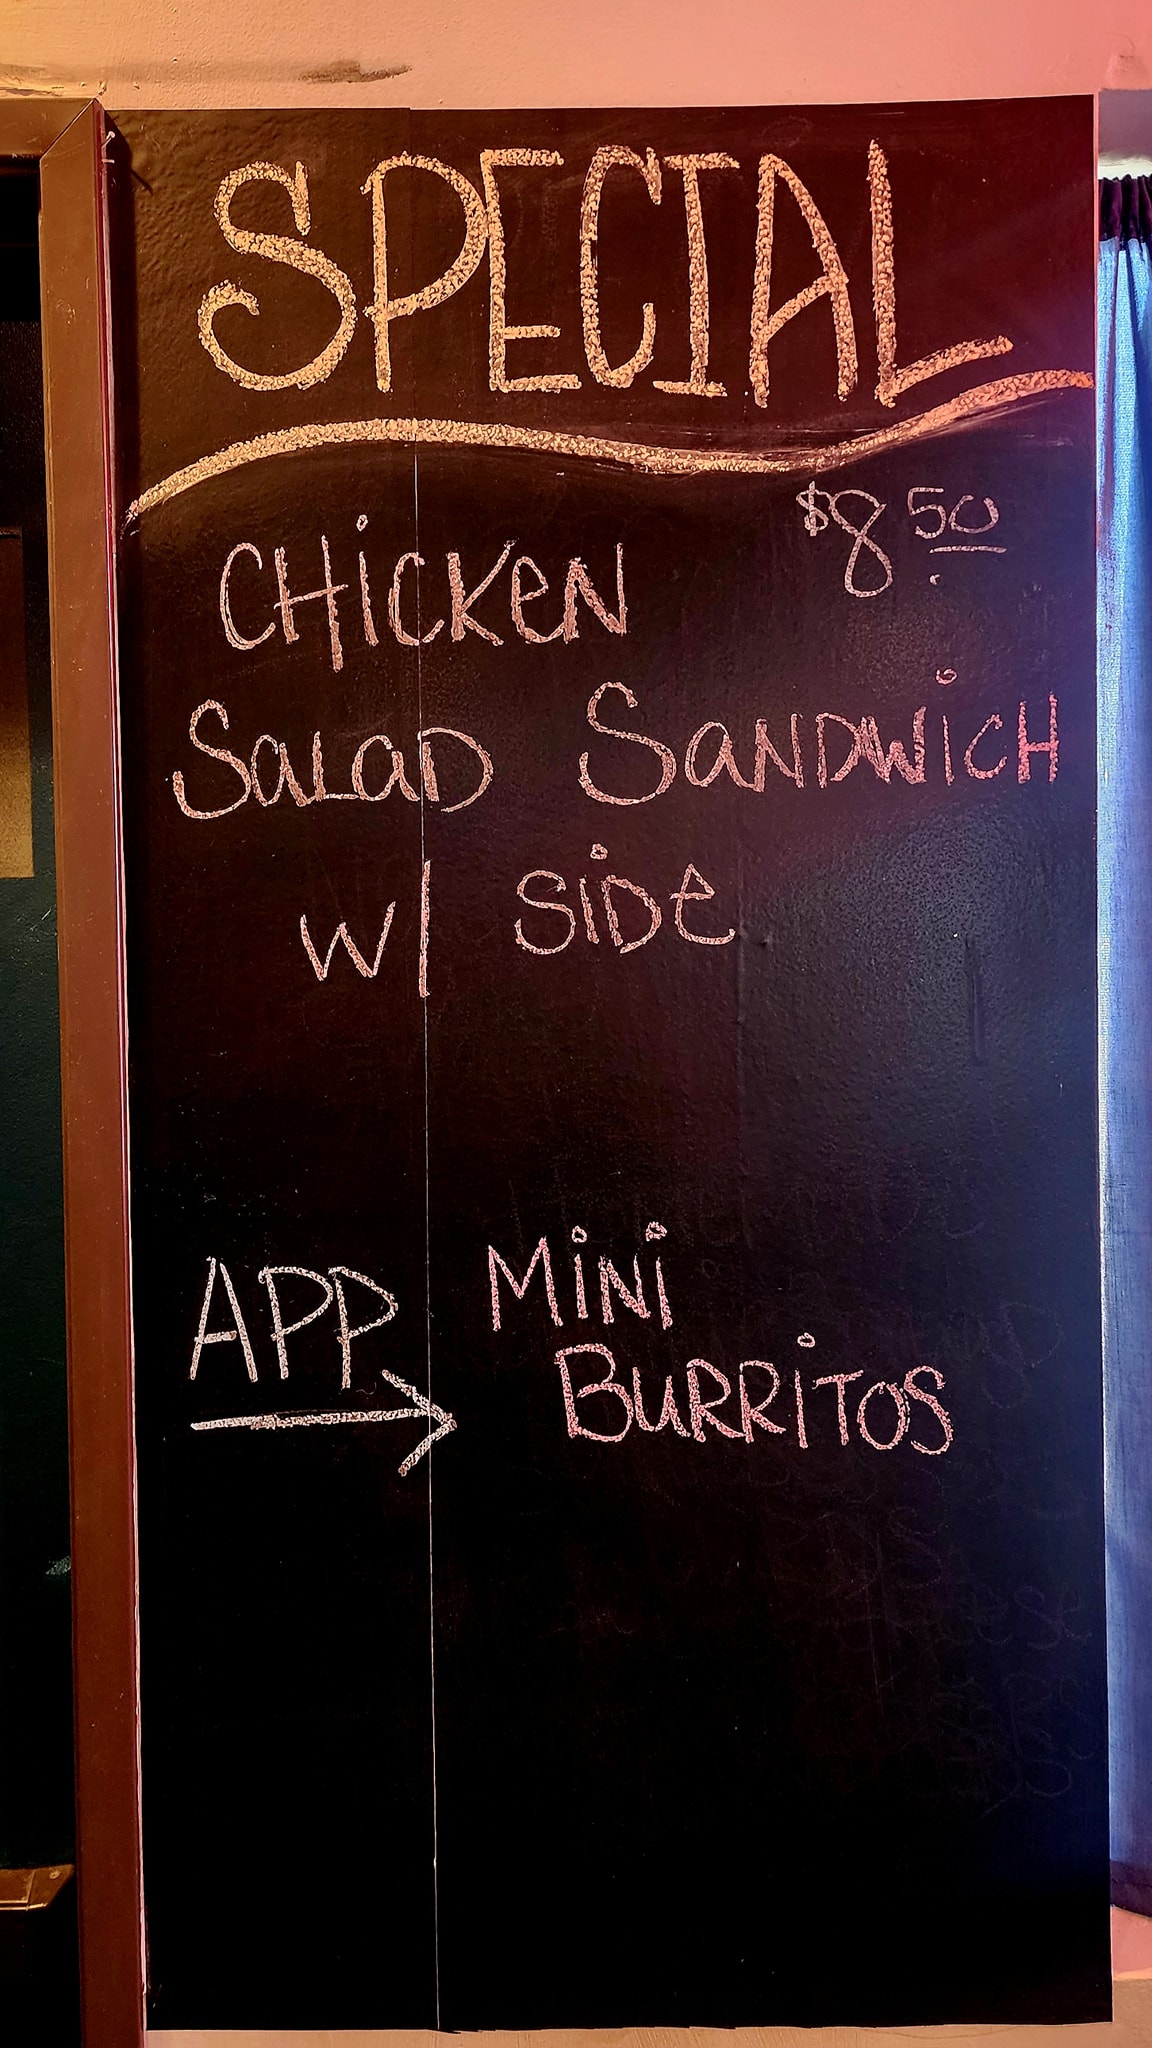 SPECIAL
$8.50
CHiCKeN
SaLaD SaNDWiCH
w/ SiDe
APP → MiNi
BuRRiTOS